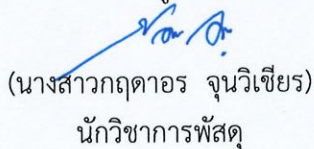 (นางสาวกฤดาอร จุนวิเชียร)
นักวิชาการพัสดุ